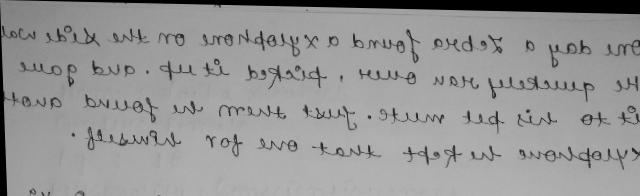 one day a Zebra found a xylophone on the side wal
He quickly ran over, picked it up. and gave
it to his pet mute. Just them he found anot
xylophone he kept that one for himself.